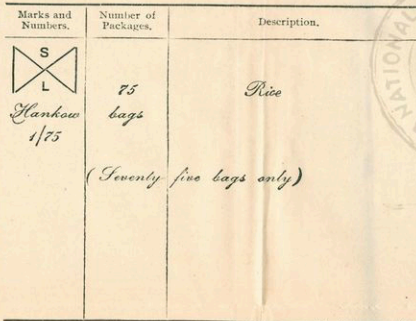 Marks and Numbers. Number of Packages. Description.
S
L
75 Rice
Hankow bags
1/75
(Seventy five bags only)
NATIONA